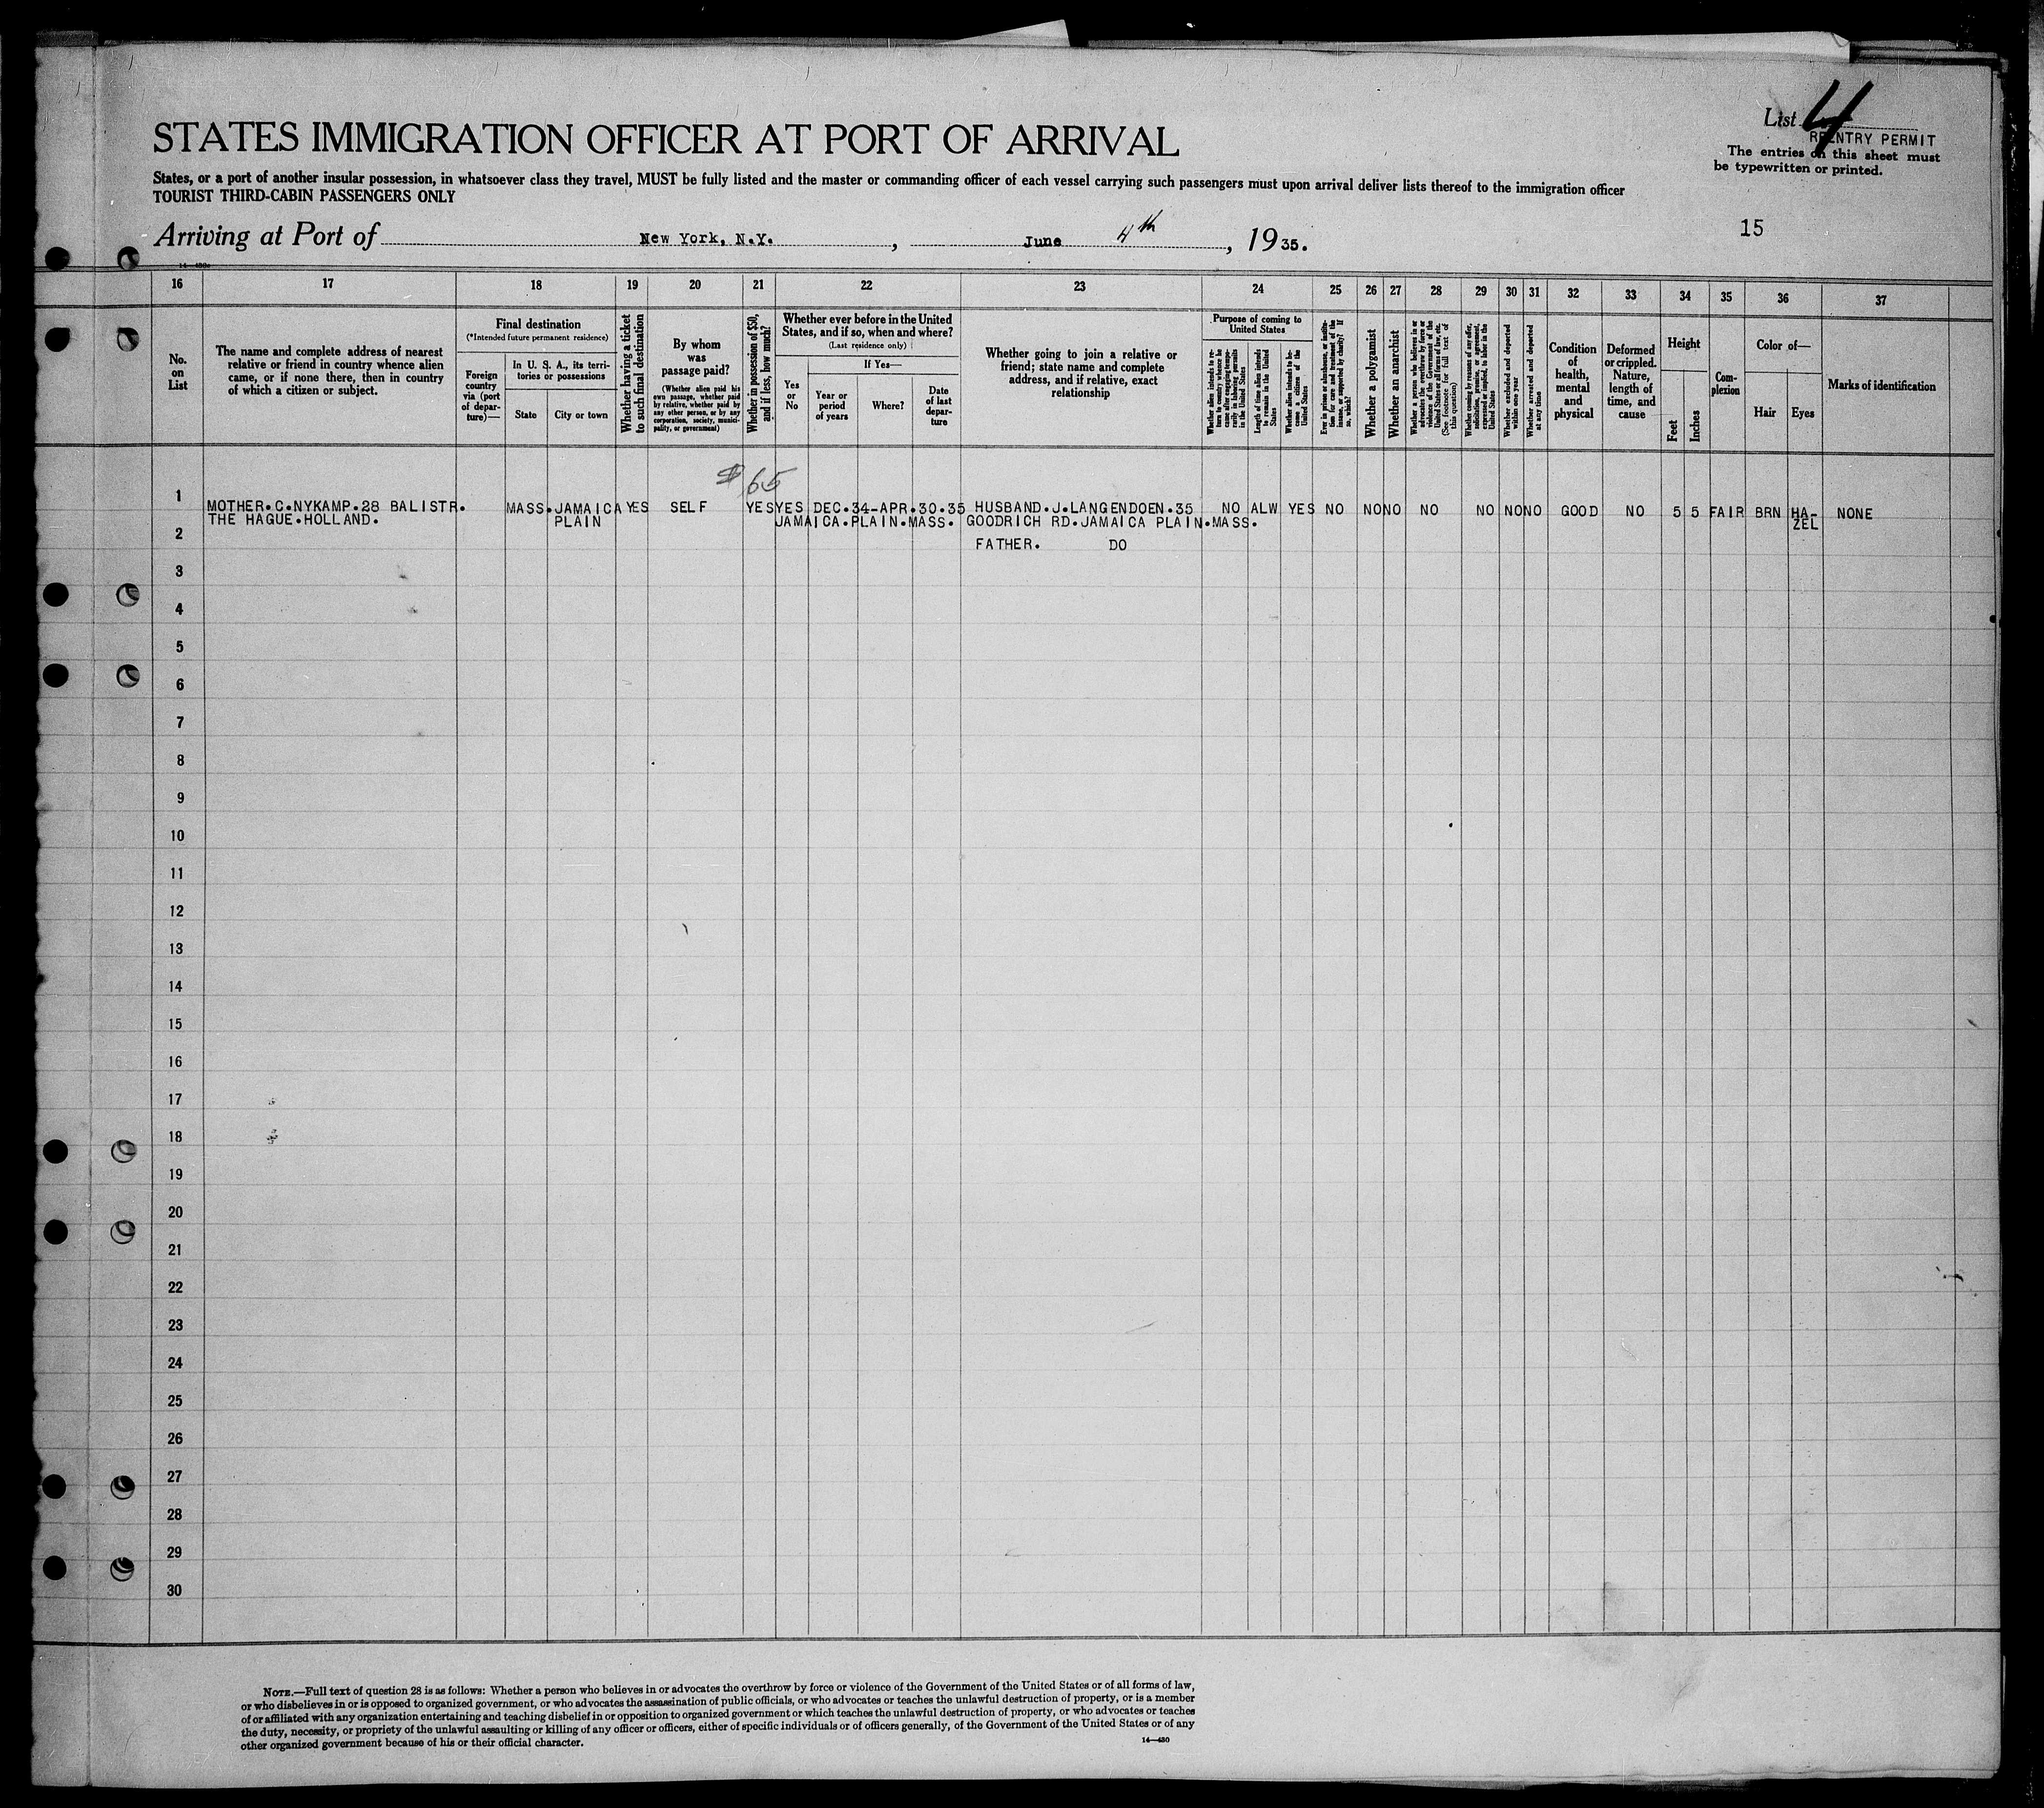 STATES IMMIGRATION OFFICER AT PORT OF ARRIVAL
List 4
REENTRY PERMIT
The entries on this sheet must
be typewritten or printed.
States, or a port of another insular possession, in whatsoever class they travel, MUST be fully listed and the master or commanding officer of each vessel carrying such passengers must upon arrival deliver lists thereof to the immigration officer
TOURIST THIRD-CABIN PASSENGERS ONLY
15
Arriving at Port of New York, N.Y., June 4th, 1935.
16 17 18 19 20 21 22 23 24 25 26 27 28 29 30 31 32 33 34 35 36 37
No. on List
The name and complete address of nearest
relative or friend in country whence alien
came, or if none there, then in country
of which a citizen or subject.
Final destination
(*Intended future permanent residence)
Foreign country via (port of departure)—
In U. S. A., its territories or possessions
State
City or town
Whether having a ticket to such final destination
By whom was passage paid?
(Whether alien paid his own passage, whether paid by relative, whether paid by any other person, or by any corporation, society, municipality, or government)
Whether in possession of $50, and if less, how much?
Whether ever before in the United
States, and if so, when and where?
(Last residence only)
Yes or No
If Yes—
Year or period of years
Where?
Date of last departure
Whether going to join a relative or
friend; state name and complete
address, and if relative, exact
relationship
Purpose of coming to United States
Whether alien intends to return to country whence he came after engaging temporarily in laboring pursuits in the United States
Length of time alien intends to remain in the United States
Whether alien intends to become a citizen of the United States
Ever in prison or almshouse, or institution for care and treatment of the insane, or supported by charity? If so, which?
Whether a polygamist
Whether an anarchist
Whether a person who believes in or advocates the overthrow by force or violence of the Government of the United States or all forms of law, etc. (See footnote for full text of this question)
Whether coming by reasons of any offer, solicitation, promise, or agreement, expressed or implied, to labor in the United States
Whether excluded and deported within one year
Whether arrested and deported at any time
Condition of health, mental and physical
Deformed or crippled. Nature, length of time, and cause
Height
Feet
Inches
Complexion
Color of—
Hair
Eyes
Marks of identification
$65
1 MOTHER.C.NYKAMP.28 BALISTR. MASS. JAMAICA YES SELF YES YES DEC.34-APR.30.35 HUSBAND.J.LANGENDOEN.35 NO ALW YES NO NO NO NO NO NO NO GOOD NO 5 5 FAIR BRN HA- NONE
THE HAGUE.HOLLAND. PLAIN JAMAICA.PLAIN.MASS. GOODRICH RD.JAMAICA PLAIN.MASS. ZEL
2 FATHER. DO
3
4
5
6
7
8
9
10
11
12
13
14
15
16
17
18
19
20
21
22
23
24
25
26
27
28
29
30
NOTE.—Full text of question 28 is as follows: Whether a person who believes in or advocates the overthrow by force or violence of the Government of the United States or of all forms of law,
or who disbelieves in or is opposed to organized government, or who advocates the assassination of public officials, or who advocates or teaches the unlawful destruction of property, or is a member
of or affiliated with any organization entertaining and teaching disbelief in or opposition to organized government or which teaches the unlawful destruction of property, or who advocates or teaches
the duty, necessity, or propriety of the unlawful assaulting or killing of any officer or officers, either of specific individuals or of officers generally, of the Government of the United States or of any
other organized government because of his or their official character.
14—430